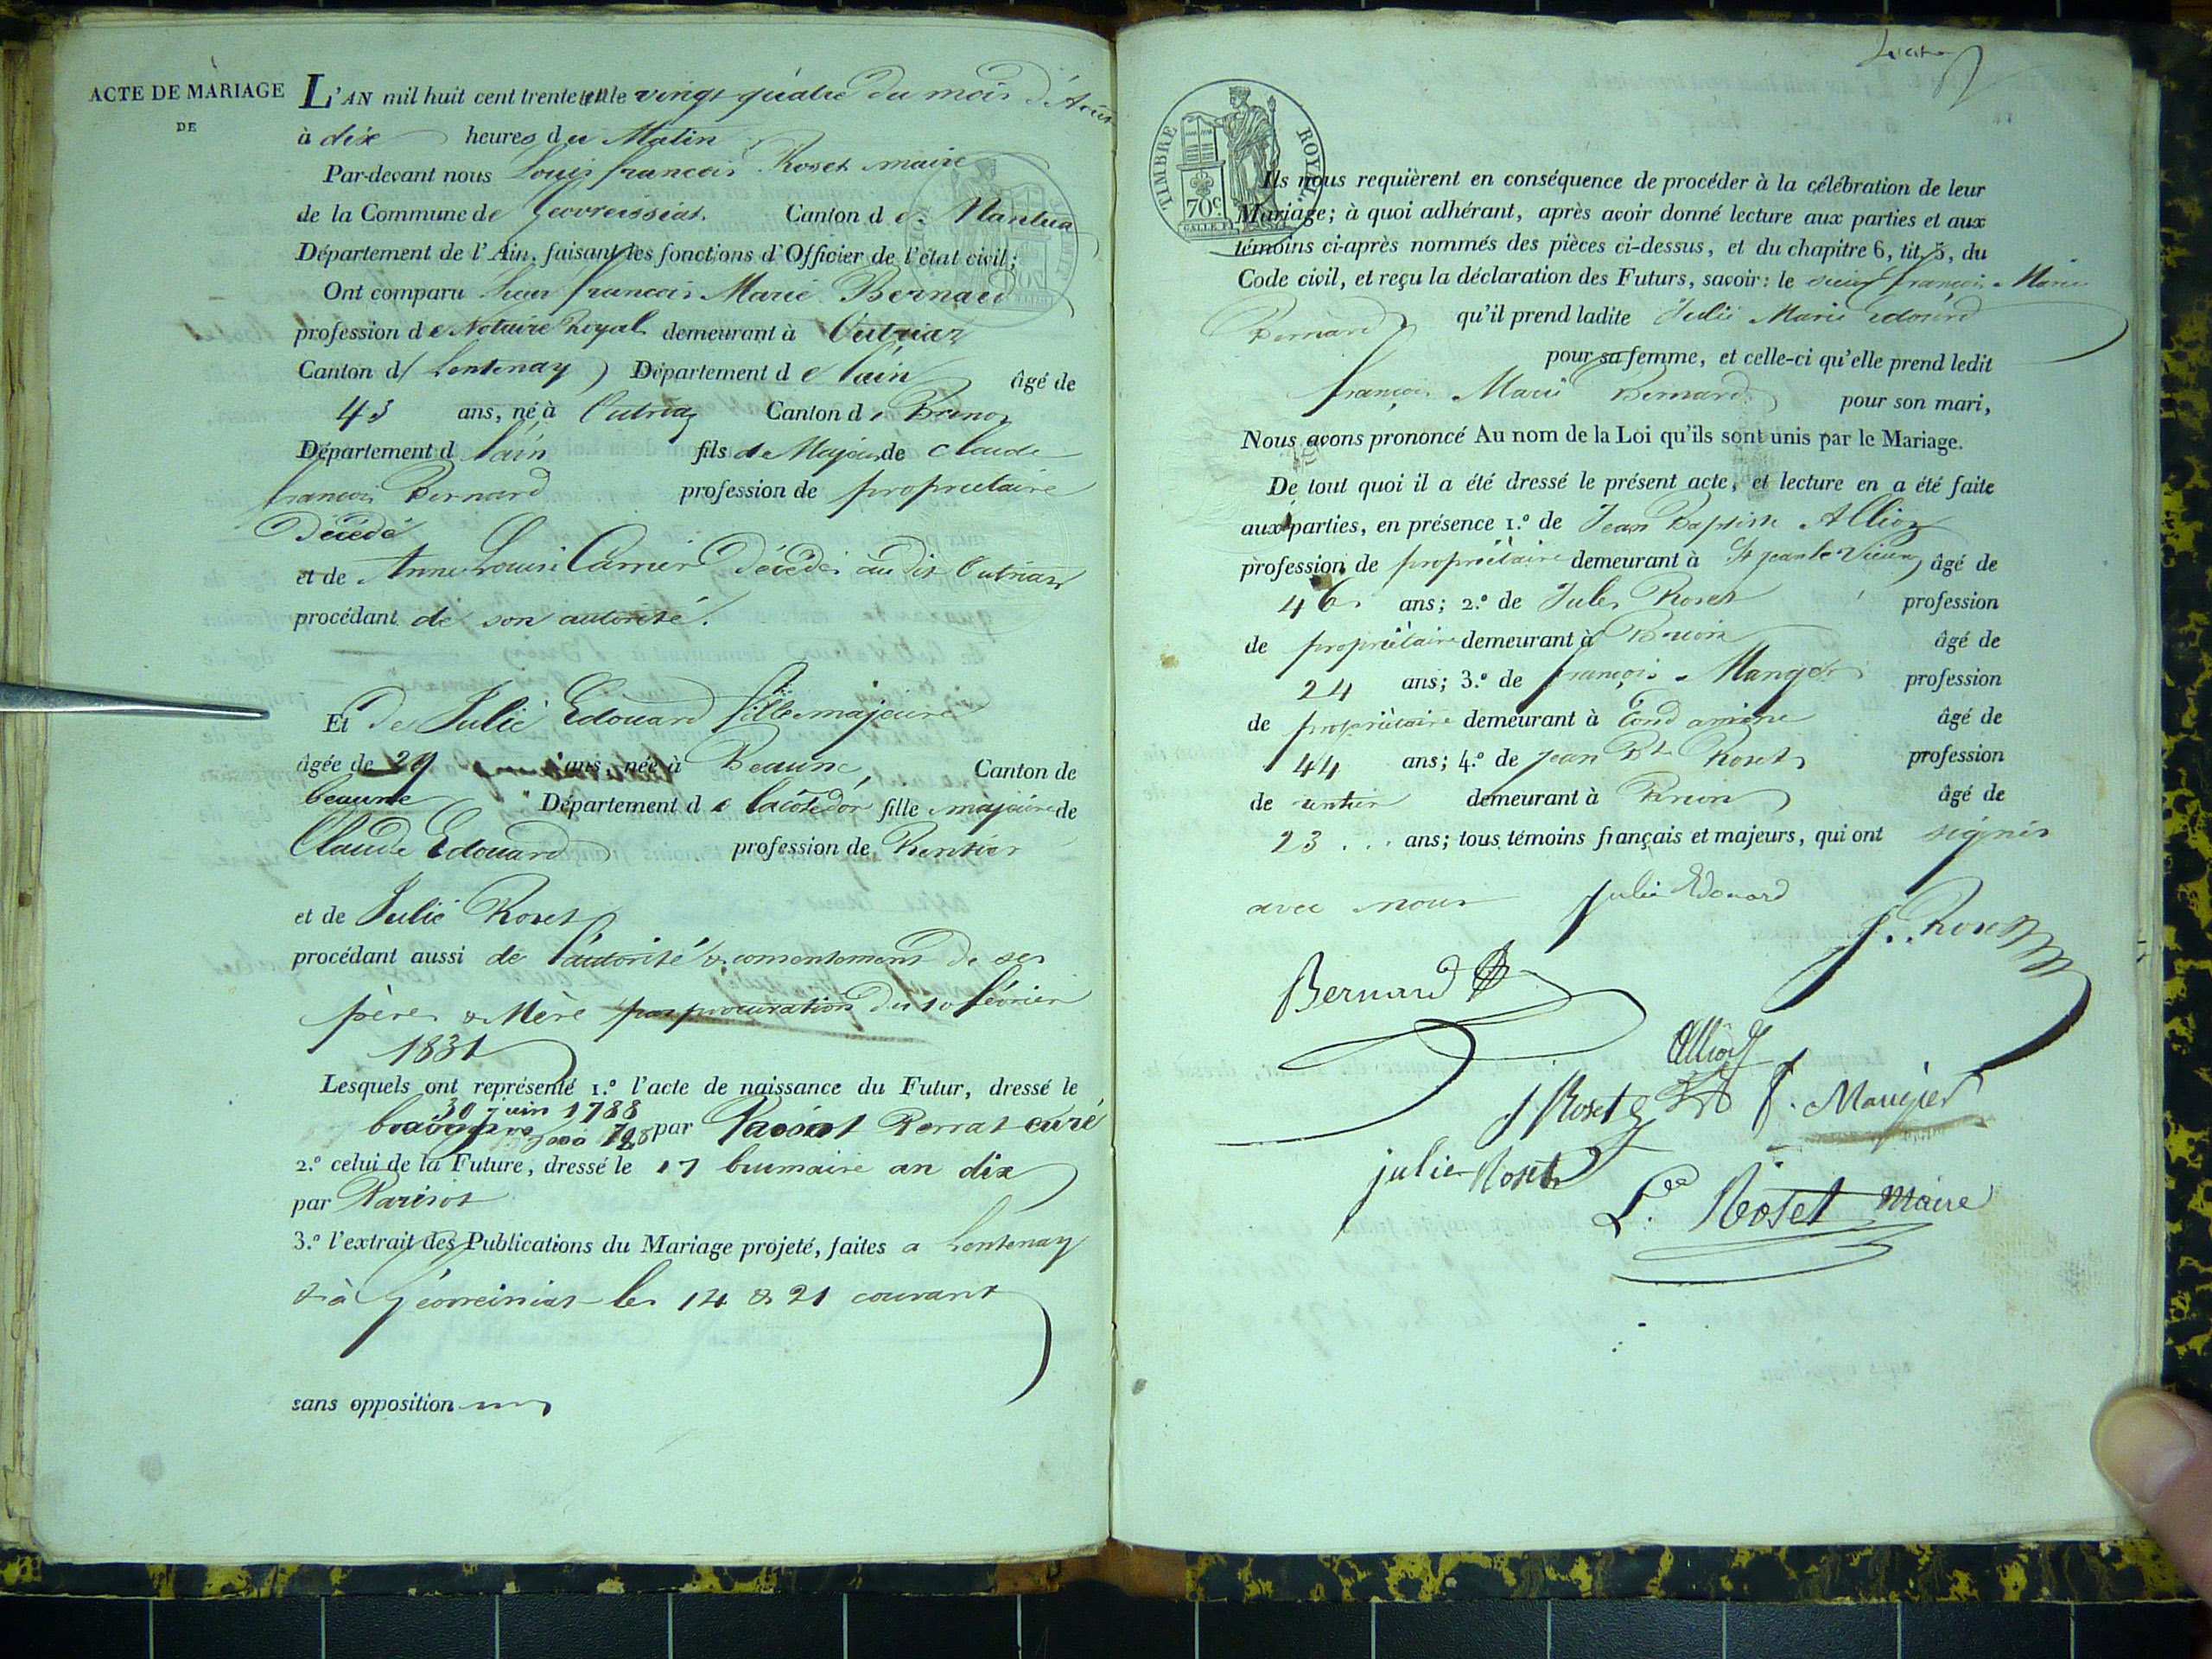 ACTE DE MARIAGE
DE
L'AN mil huit cent trente et un le vingt quatre du mois d'Août
à dix heures du Matin
Par-devant nous Louis françois Roset maire
de la Commune de Geovreissiat. Canton de Nantua
Département de l'Ain, faisant les fonctions d'Officier de l'état civil;
Ont comparu Sieur françois Marie Bernard
profession de Notaire Royal demeurant à Outriaz
Canton d Lentenay Département de l'ain âgé de
43 ans, né à Outriaz Canton de Brenoz
Département d l'ain fils de Majeur de Claude
françois Bernard profession de propriétaire
Décédé
et de Anne Louise Carrier décédée au dit Outriaz
procédant de son autorité.
Et De Julie Edouard fille majeure
âgée de 29 ans, née à Beaune, Canton de
beaune Département de la côte d'or fille majeure de
Claude Edouard profession de Rentier
et de Julie Roset
procédant aussi de l'autorité & consentement de ses
père & Mère par procuration du 10 février
1831
Lesquels ont représenté 1.º l'acte de naissance du Futur, dressé le
30 juin 1788
par Perrat curé
2.º celui de la Future, dressé le 17 brumaire an dix
par Parisot
3.º l'extrait des Publications du Mariage projeté, faites a Lentenay
& à Géovreissiat les 14 & 21 courant
sans opposition
TIMBRE ROYAL
70 c.
Ils nous requièrent en conséquence de procéder à la célébration de leur
Mariage; à quoi adhérant, après avoir donné lecture aux parties et aux
témoins ci-après nommés des pièces ci-dessus, et du chapitre 6, tit. 5, du
Code civil, et reçu la déclaration des Futurs, savoir: le sieur françois Marie
Bernard qu'il prend ladite Julie Marie edouard
pour sa femme, et celle-ci qu'elle prend ledit
françois Marie Bernard pour son mari,
Nous avons prononcé Au nom de la Loi qu'ils sont unis par le Mariage.
De tout quoi il a été dressé le présent acte, et lecture en a été faite
aux parties, en présence 1.º de Jean Baptiste Allioz
profession de propriétaire demeurant à St jean le Vieux âgé de
46 ans; 2.º de Jules Roset profession
de propriétaire demeurant à Brion âgé de
24 ans; 3.º de françois Mangier profession
de propriétaire demeurant à Condamine âgé de
44 ans; 4.º de jean Bte Roset profession
de rentier demeurant à Brion âgé de
23 ... ans; tous témoins français et majeurs, qui ont signés
avec nous Julie Edouard
J. Roset
Bernard
Allioz
J Roset F. Mangier
julie Roset
L. Roset Maire